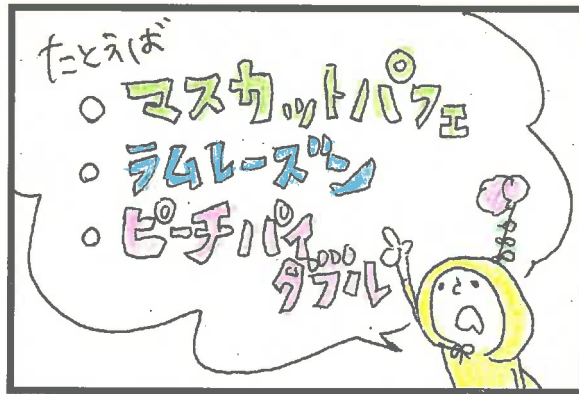 たとえば
○ マスカットパフェ
○ ラムレーズン
○ ピーチパイ
ダブル